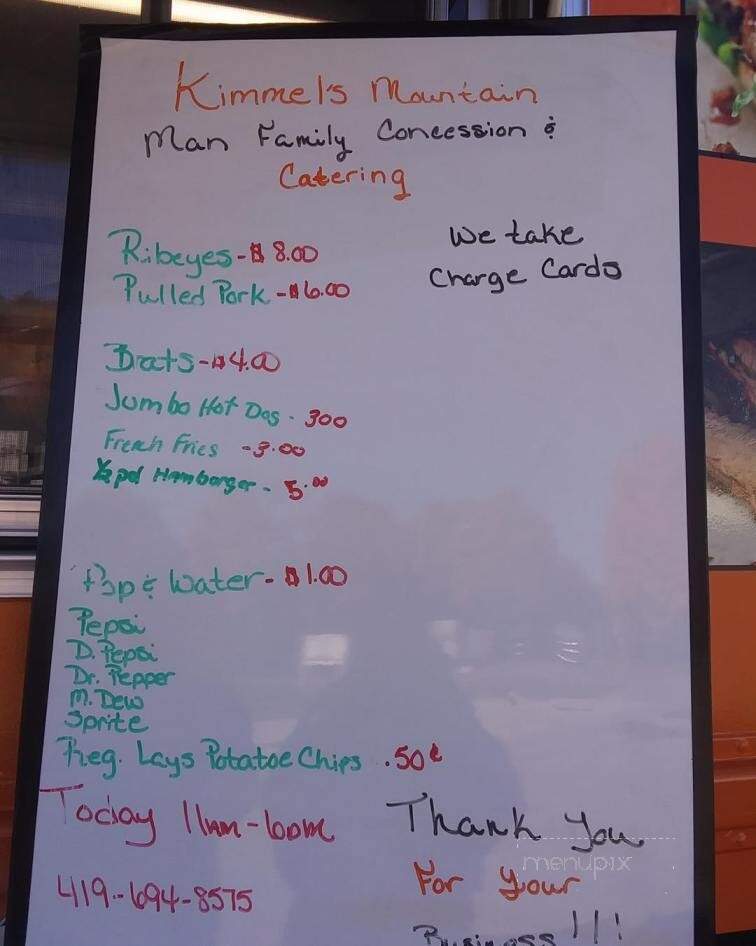 Kimmel's Mountain
Man Family Concession &
Catering
We take
Charge Cards
Ribeyes - $ 8.00
Pulled Pork - $6.00
Brats - $4.00
Jumbo Hot Dog - 300
French Fries - 3.00
½ pd Hamburger - 5.00
Pop & Water - $1.00
Pepsi
D. Pepsi
Dr. Pepper
M. Dew
Sprite
Reg. Lays Potatoe Chips .50¢
Today 11am-6pm
419-694-8575
Thank You
For Your
Business!!!
menupix